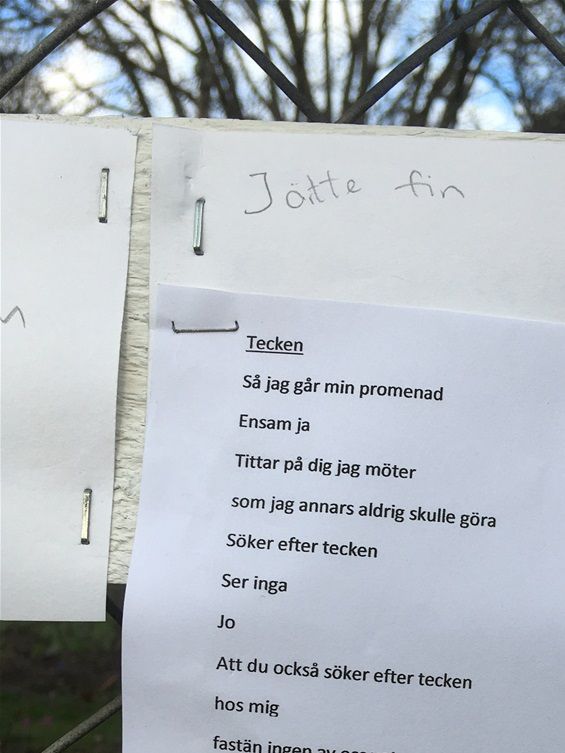 Jätte fin
Tecken
Så jag går min promenad
Ensam ja
Tittar på dig jag möter
som jag annars aldrig skulle göra
Söker efter tecken
Ser inga
Jo
Att du också söker efter tecken
hos mig
fastän ingen av